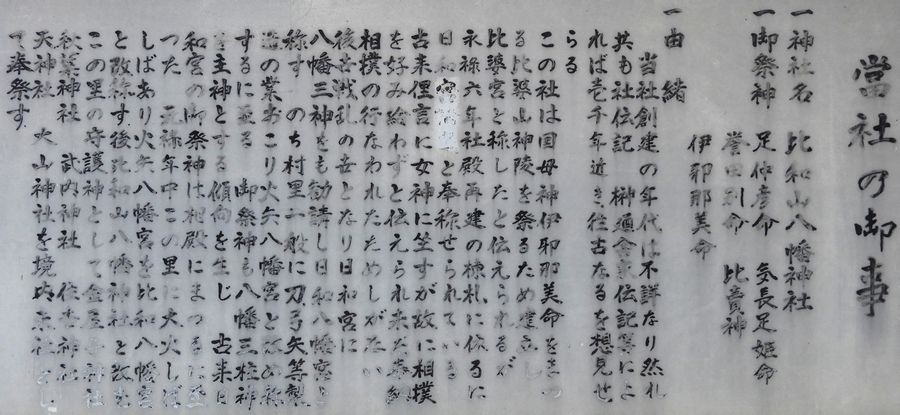 當社の御事
一神社名 比和山八幡神社
一御祭神 足仲彦命 気長足姫命
誉田別命 比賣神
伊邪那美命
一由緒
当社創建の年代は不詳なり然れ
共も社伝記 榊頭舎家伝記等によ
れば壱千年近き往古なるを想見せ
らる
この社は国母神伊邪那美命をまつ
る比婆山神陵を祭るため建立し
比婆宮と称したと伝えられるが
永禄六年社殿再建の棟札に依るに
日和 と奉称せられている
古来俚言に女神に竺すが故に相撲
を好み給わずと伝えられ来た奉納
相撲の行なわれたためしがない
後古戦乱の世となり日和宮に
八幡三神をも勧請し日和八幡宮と
称す のち村里一般に刀弓矢等製
造の業おこり火矢八幡宮と改め称
するに至る 御祭神も八幡三柱神
を主神とする傾向を生じ 古来日
和宮の御祭神は相殿にまつるに至
つた 元禄年中この里に大火しば
しばあり火矢八幡宮を比和八幡宮
と改称す 後比和山八幡神社と改む
この里の守護神として金屋子神社
秋葉神社 武内神社 住吉神社
天神社 大山神社を境内末社とし
て奉祭す